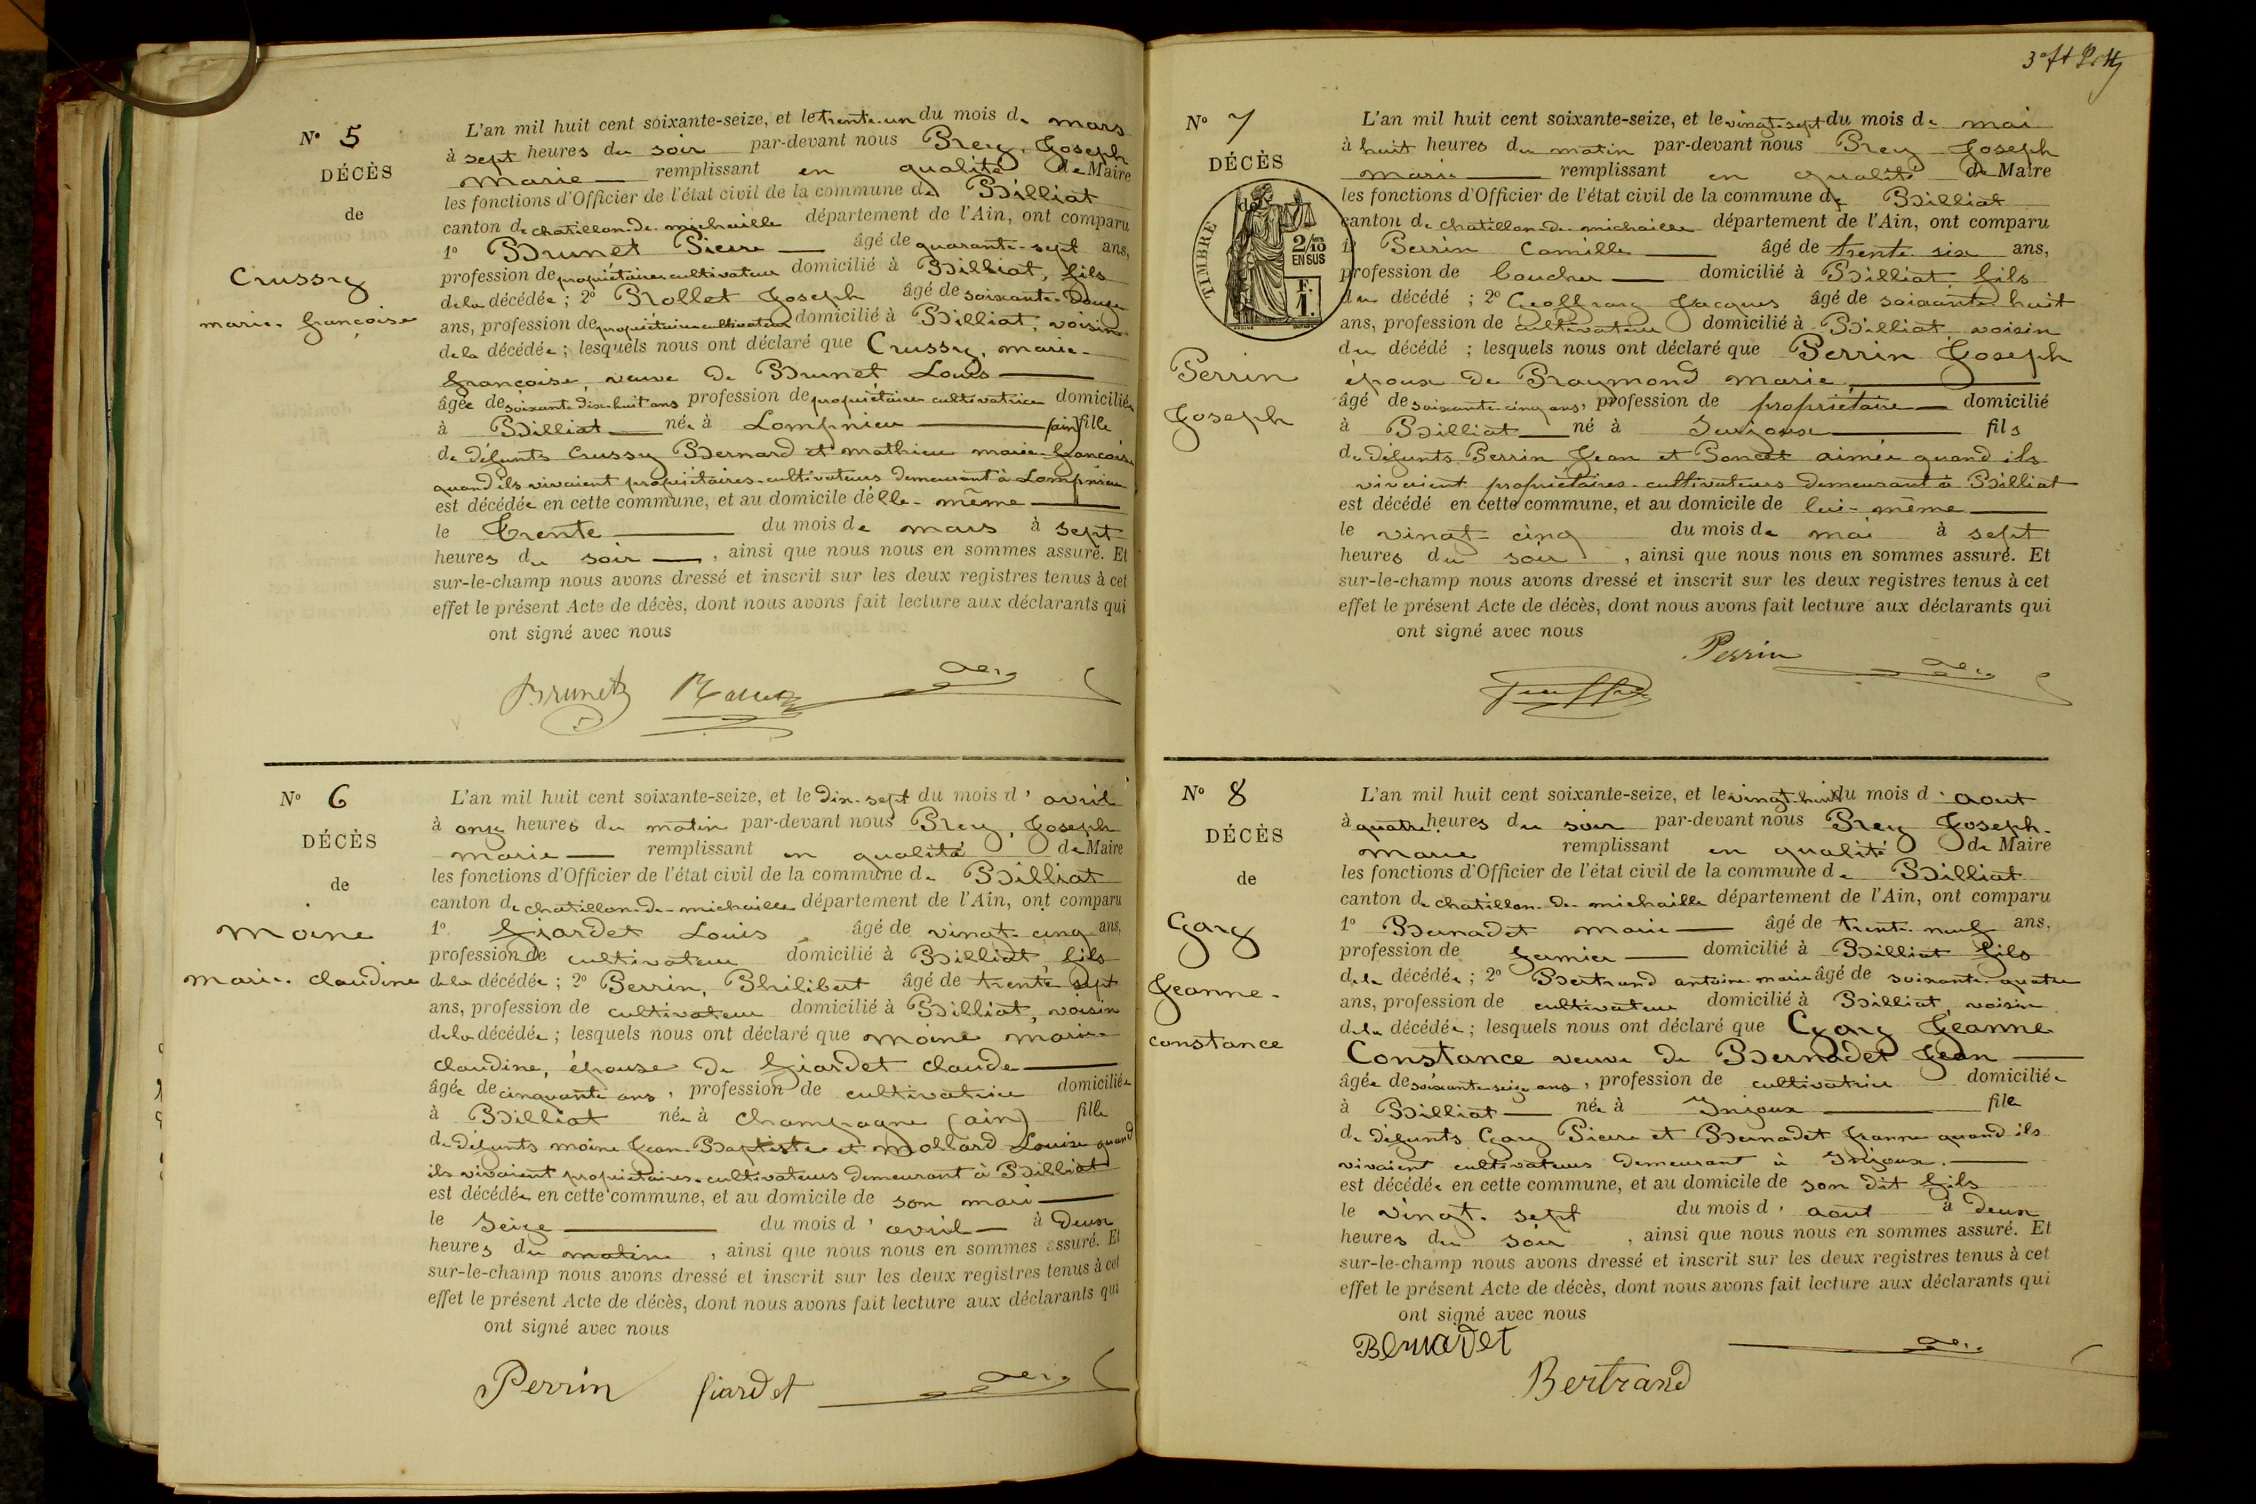 N° 5
DÉCÈS
de
Crussy
marie-françoise
L'an mil huit cent soixante-seize, et le trente-un du mois de mars
à sept heures du soir par-devant nous Prey, Joseph
Marie remplissant en qualité de Maire
les fonctions d'Officier de l'état civil de la commune de Billiat
canton de chatillon-de-michaille département de l'Ain, ont comparu
1° Brunet Pierre âgé de quarante-sept ans,
profession de propriétaire cultivateur domicilié à Billiat, fils
de la décédée ; 2° Rollet Joseph âgé de soixante-douze
ans, profession de propriétaire cultivateur domicilié à Billiat, voisin
de la décédée ; lesquels nous ont déclaré que Crussy, marie-
françoise, veuve de Brunet Louis
âgée de soixante-dix-huit ans profession de propriétaire cultivatrice domiciliée
à Billiat née à Lompnieu (ain) fille
de défunts Crussy Bernard et mathieu marie-françoise
quand ils vivaient propriétaires-cultivateurs demeurant à Lompnieu
est décédée en cette commune, et au domicile d'elle-même
le trente du mois de mars à sept
heures du soir, ainsi que nous nous en sommes assuré. Et
sur-le-champ nous avons dressé et inscrit sur les deux registres tenus à cet
effet le présent Acte de décès, dont nous avons fait lecture aux déclarants qui
ont signé avec nous
Brunet
N° 6
DÉCÈS
de
Moine
Marie-claudine
L'an mil huit cent soixante-seize, et le dix-sept du mois d'avril
à onze heures du matin par-devant nous Prey, Joseph
marie remplissant en qualité de Maire
les fonctions d'Officier de l'état civil de la commune de Billiat
canton de chatillon-de-michaille département de l'Ain, ont comparu
1° Giardet Louis âgé de vingt-cinq ans,
profession de cultivateur domicilié à Billiat fils
de la décédée ; 2° Perrin, Philibert âgé de trente sept
ans, profession de cultivateur domicilié à Billiat, voisin
de la décédée ; lesquels nous ont déclaré que moine marie
claudine, épouse de Giardet claude
âgée de cinquante ans, profession de cultivatrice domiciliée
à Billiat née à Champagne (ain) fille
de défunts moine Jean-Baptiste et Mollard Louise quand
ils vivaient propriétaires-cultivateurs demeurant à Billiat
est décédée en cette commune, et au domicile de son mari
le seize du mois d'avril à deux
heures du matin, ainsi que nous nous en sommes assuré. Et
sur-le-champ nous avons dressé et inscrit sur les deux registres tenus à cet
effet le présent Acte de décès, dont nous avons fait lecture aux déclarants qui
ont signé avec nous
Perrin Giardet
N° 7
DÉCÈS
de
TIMBRE
2/10
EN SUS
F.
1.
Perrin
Joseph
L'an mil huit cent soixante-seize, et le vingt-sept du mois de mai
à huit heures du matin par-devant nous Prey Joseph
marie remplissant en qualité de Maire
les fonctions d'Officier de l'état civil de la commune de Billiat
canton de chatillon-de-michaille département de l'Ain, ont comparu
1° Perrin Camille âgé de trente six ans,
profession de boucher domicilié à Billiat, fils
du décédé ; 2° Geoffray Jacques âgé de soixante huit
ans, profession de cultivateur domicilié à Billiat voisin
du décédé ; lesquels nous ont déclaré que Perrin Joseph
époux de Raymond marie,
âgé de soixante-cinq ans, profession de propriétaire domicilié
à Billiat né à Surjoux fils
de défunts Perrin Jean et Poncet aimée quand ils
vivaient propriétaires-cultivateurs demeurant à Billiat
est décédé en cette commune, et au domicile de lui-même
le vingt-cinq du mois de mai à sept
heures du soir, ainsi que nous nous en sommes assuré. Et
sur-le-champ nous avons dressé et inscrit sur les deux registres tenus à cet
effet le présent Acte de décès, dont nous avons fait lecture aux déclarants qui
ont signé avec nous
Perrin
N° 8
DÉCÈS
de
Gary
Jeanne-
constance
L'an mil huit cent soixante-seize, et le vingt-huit du mois d'aout
à quatre heures du soir par-devant nous Prey Joseph-
Marie remplissant en qualité de Maire
les fonctions d'Officier de l'état civil de la commune de Billiat
canton de chatillon-de-michaille département de l'Ain, ont comparu
1° Bernadet marie âgé de trente-neuf ans,
profession de fermier domicilié à Billiat fils
de la décédée ; 2° Bertrand antoine-marie âgé de soixante-quatre
ans, profession de cultivateur domicilié à Billiat, voisin
de la décédée ; lesquels nous ont déclaré que Gary Jeanne
Constance veuve de Bernadet Jean
âgée de soixante-seize ans, profession de cultivatrice domiciliée
à Billiat née à Injoux fille
de défunts Gary Pierre et Bernadet Jeanne quand ils
vivaient cultivateurs demeurant à Injoux.
est décédée en cette commune, et au domicile de son dit fils
le vingt-sept du mois d'aout à deux
heures du soir, ainsi que nous nous en sommes assuré. Et
sur-le-champ nous avons dressé et inscrit sur les deux registres tenus à cet
effet le présent Acte de décès, dont nous avons fait lecture aux déclarants qui
ont signé avec nous
Bernadet
Bertrand